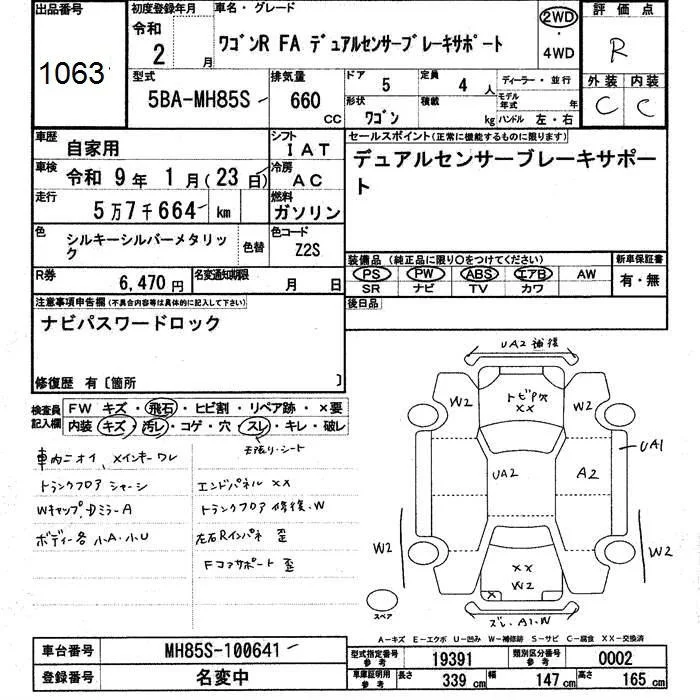 出品番号
1063
初度登録年月
令和
2 月
車名・グレード
ワゴンR FA デュアルセンサーブレーキサポート
2WD
・
4WD
評価点
R
外装 内装
C C
型式
5BA-MH85S
排気量
660
CC
ドア
5
定員
4 人
形状
ワゴン
積載
kg
ディーラー・並行
モデル年式 年
ハンドル 左・右
車歴
自家用
シフト
IAT
車検
令和 9年 1月(23日)
冷房
AC
走行
5万7千664 km
燃料
ガソリン
色
シルキーシルバーメタリック
色替
色コード
Z2S
R券
6,470円
名変通知期限
月 日
セールスポイント(正常に機能するものに限ります)
デュアルセンサーブレーキサポート
装備品(純正品に限り○をつけてください)
PS PW ABS エアB AW
SR ナビ TV カワ
新車保証書
有・無
後日品
注意事項申告欄(不具合内容等は具体的に記入して下さい)
ナビパスワードロック
修復歴 有〔箇所 〕
検査員記入欄
FW キズ・飛石・ヒビ割・リペア跡・×要
内装 キズ・汚レ・コゲ・穴・スレ・キレ・破レ
天張り・シート
車内ニオイ、メインキーワレ
トランクフロア シャーシ
Wキャップ、Dミラー A
ボディー各 小A・小U
エンドパネル ××
トランクフロア 修復、W
左右Rインパネ 歪
Fコアサポート 歪
UA2 補修
トビP穴
××
W2
W2
UA1
UA2
A2
W2
W2
××
W2
×
ズレ、A1、W
スペア
A-キズ E-エクボ U-凹み W-補修跡 S-サビ C-腐食 XX-交換済
車台番号
MH85S-100641
登録番号
名変中
型式指定番号
参考
19391
類別区分番号
参考
0002
車庫証明用
参考
長さ 339 cm
幅 147 cm
高さ 165 cm